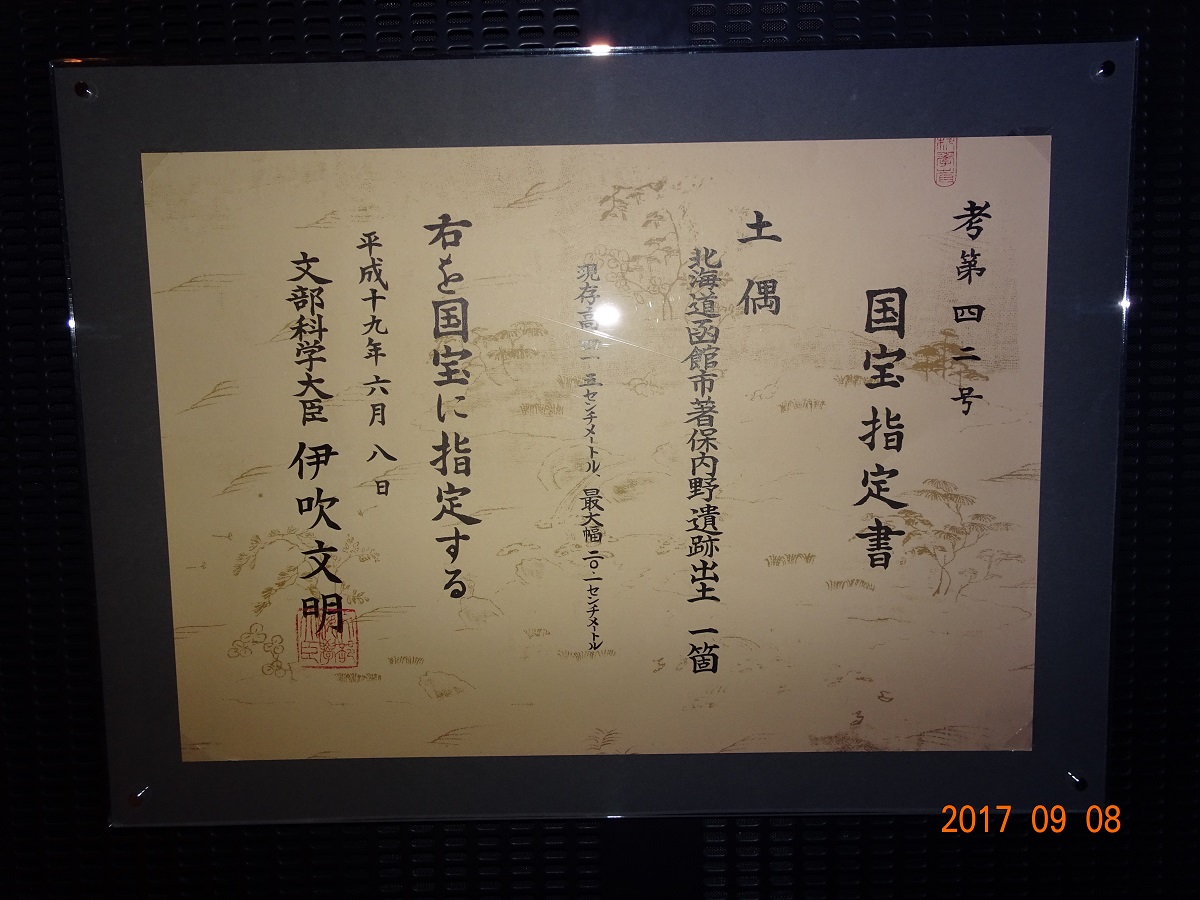 考第四二号
国宝指定書
土偶
北海道函館市著保内野遺跡出土 一箇
現存高四一・五センチメートル、最大幅二〇・一センチメートル
右を国宝に指定する
平成十九年六月八日
文部科学大臣 伊吹文明
2017 09 08